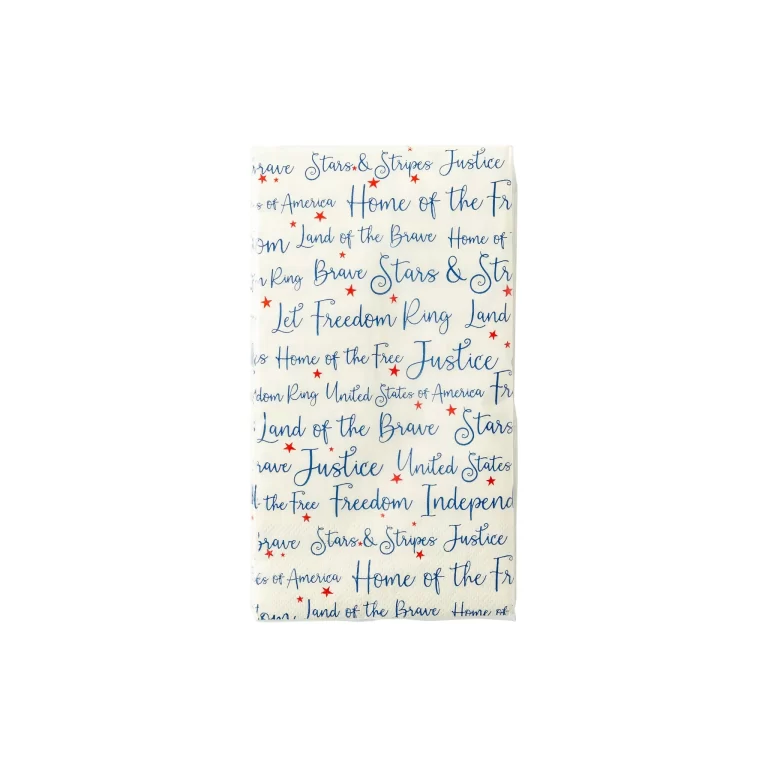 brave Stars & Stripes Justice
s of America Home of the Fr
om Land of the Brave Home of
m Ring Brave Stars & Str
Let Freedom Ring Land
es Home of the Free Justice
dom Ring United States of America Fr
Land of the Brave Stars
rave Justice United States
the Free Freedom Independ
brave Stars & Stripes Justice
es of America Home of the Fr
om Land of the Brave Home of